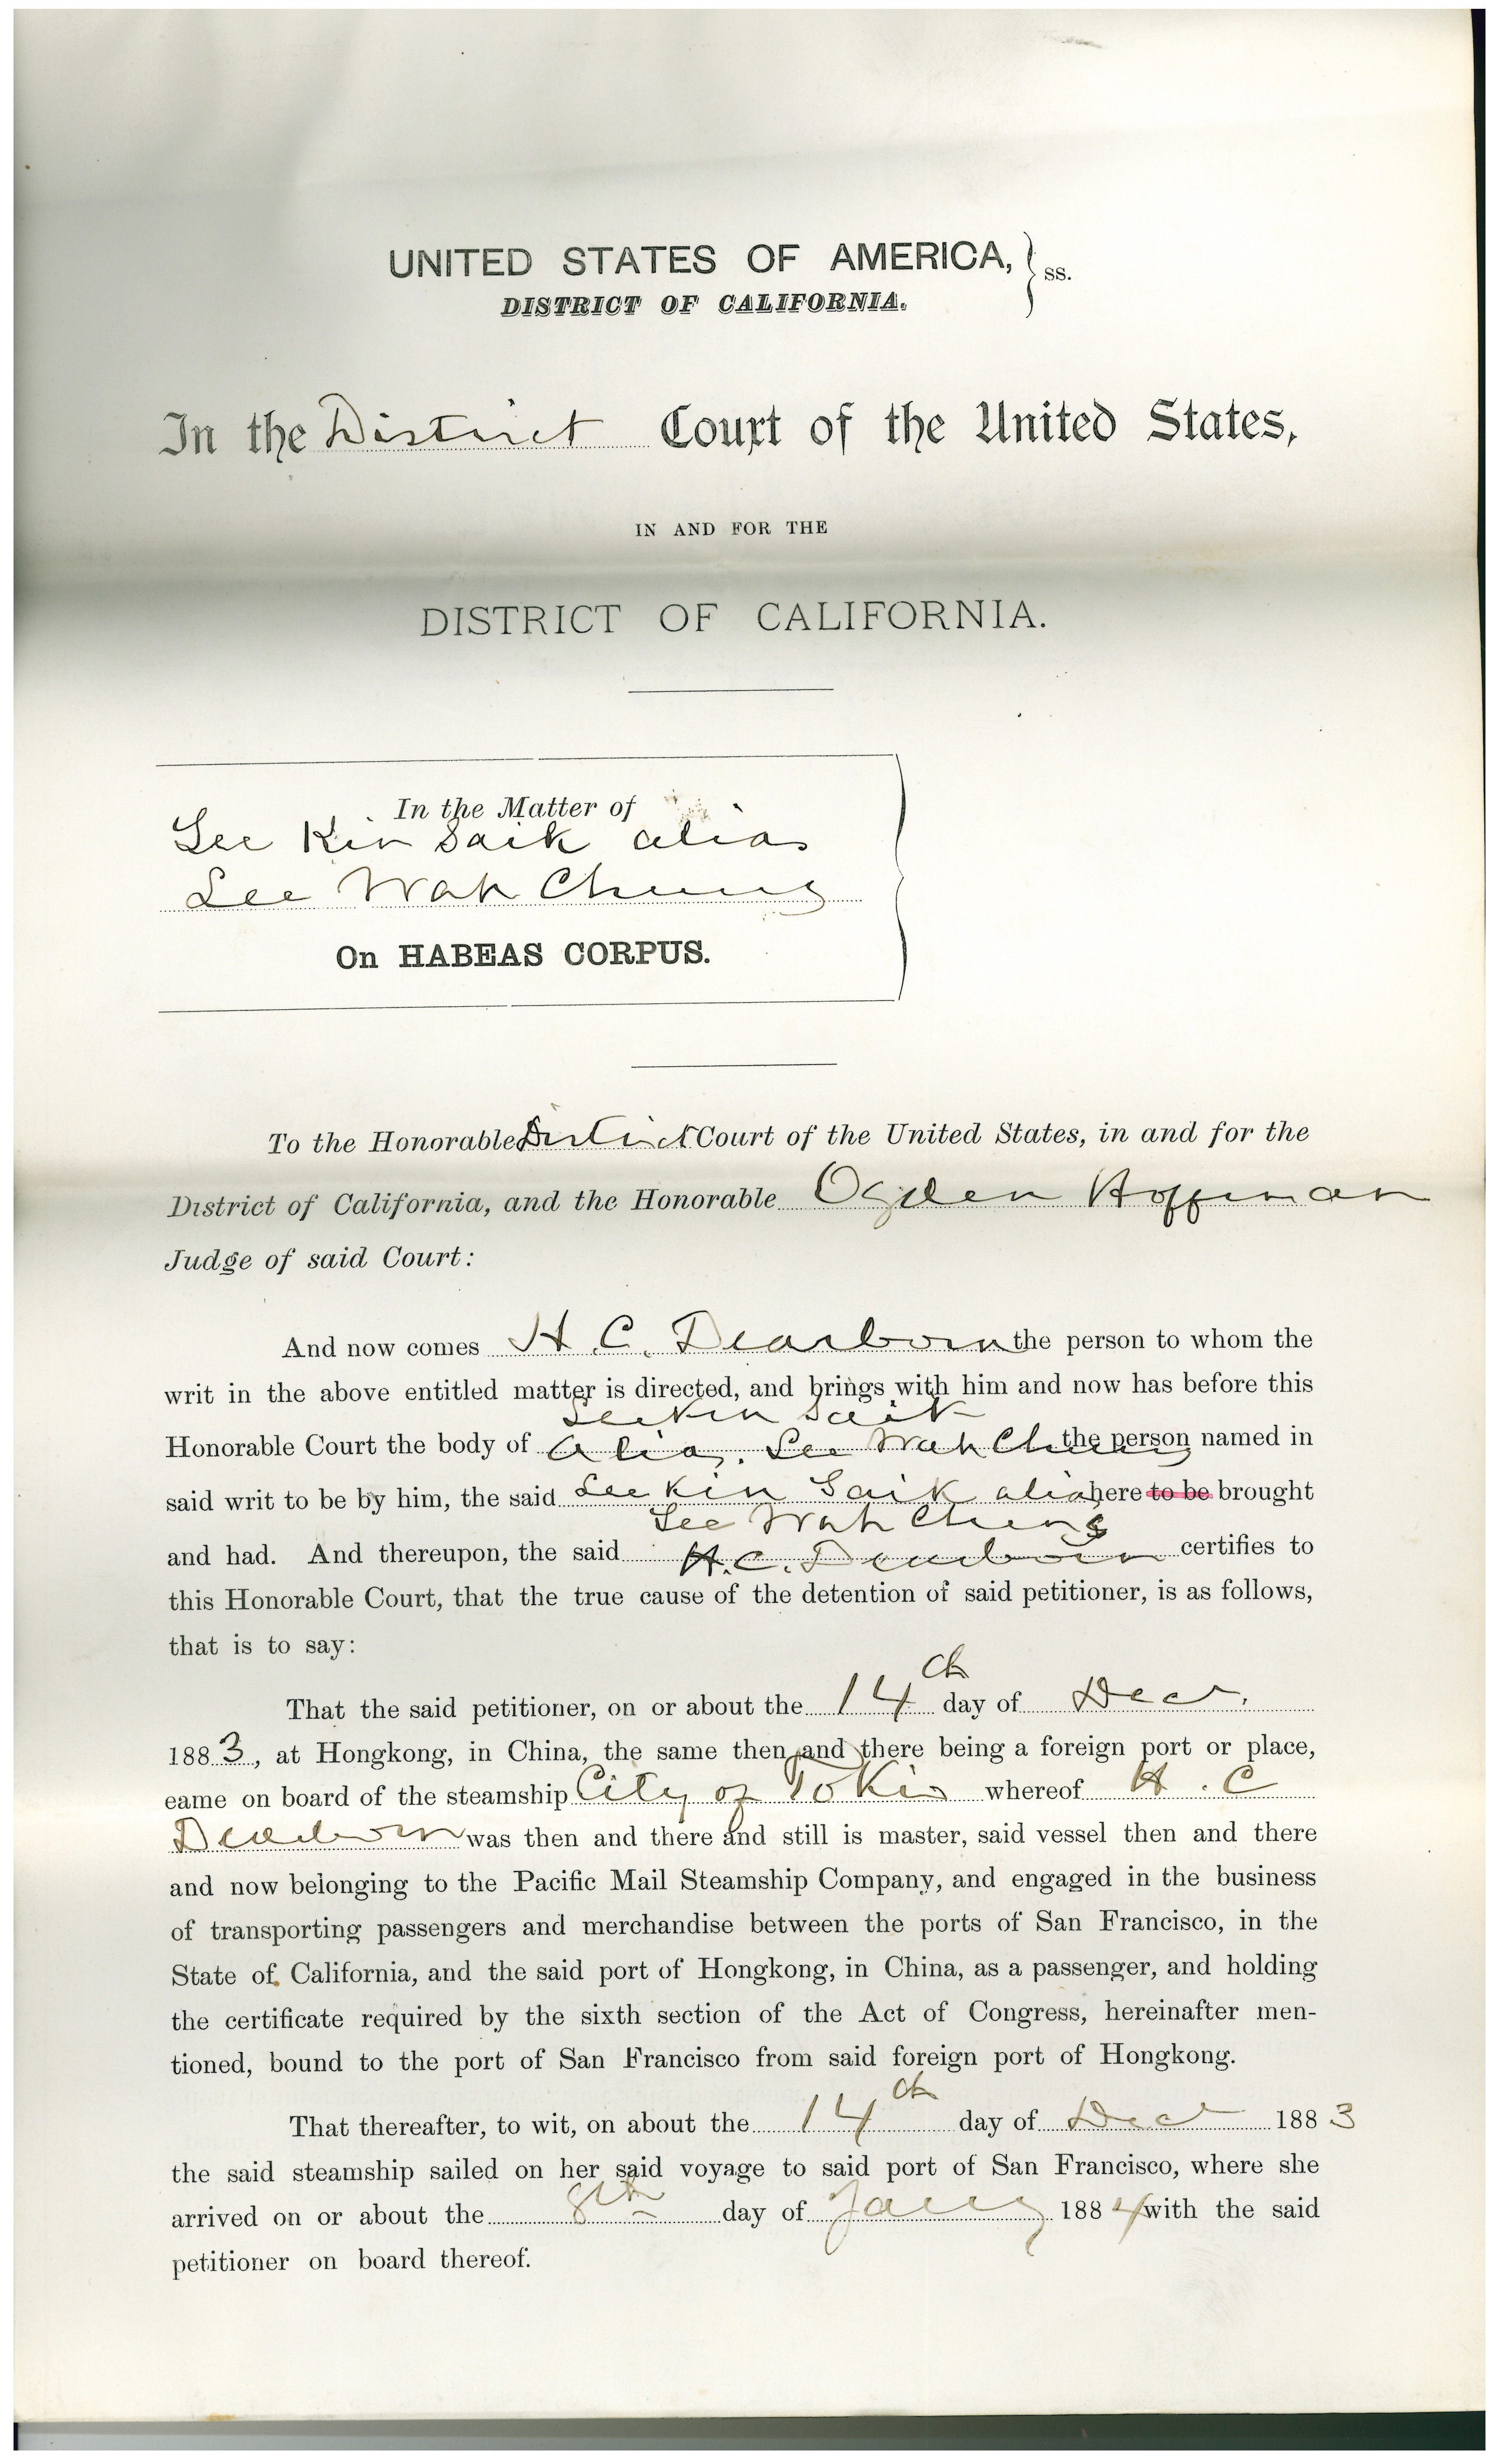 UNITED STATES OF AMERICA, } ss.
DISTRICT OF CALIFORNIA.
In the District Court of the United States,
IN AND FOR THE
DISTRICT OF CALIFORNIA.
In the Matter of
Lee Kin Saik alias
Lee Wah Chung
On HABEAS CORPUS.
To the Honorable District Court of the United States, in and for the
District of California, and the Honorable Ogden Hoffman
Judge of said Court:
And now comes H. C. Dearborn the person to whom the
writ in the above entitled matter is directed, and brings with him and now has before this
Lee Kin Saik
Honorable Court the body of alias. Lee Wah Chung the person named in
said writ to be by him, the said Lee Kin Saik alias here to be brought
Lee Wah Chung
and had. And thereupon, the said H. C. Dearborn certifies to
this Honorable Court, that the true cause of the detention of said petitioner, is as follows,
that is to say:
That the said petitioner, on or about the 14th day of Decr.
1883, at Hongkong, in China, the same then and there being a foreign port or place,
came on board of the steamship City of Tokio whereof H. C
Dearborn was then and there and still is master, said vessel then and there
and now belonging to the Pacific Mail Steamship Company, and engaged in the business
of transporting passengers and merchandise between the ports of San Francisco, in the
State of California, and the said port of Hongkong, in China, as a passenger, and holding
the certificate required by the sixth section of the Act of Congress, hereinafter men-
tioned, bound to the port of San Francisco from said foreign port of Hongkong.
That thereafter, to wit, on about the 14th day of Decr 1883
the said steamship sailed on her said voyage to said port of San Francisco, where she
arrived on or about the 8th day of Jany 1884 with the said
petitioner on board thereof.